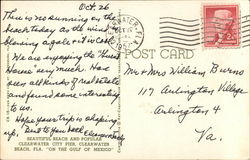 Oct. 26
There is no sunning on the
beach today as the wind is
blowing a gale & it is cold.
We are enjoying the
house very much. Have
seen all kinds of real estate
and found some interesting
to us.
Hope your trip is shaping
up.
BEAUTIFUL BEACH AND POPULAR
CLEARWATER CITY PIER, CLEARWATER
BEACH, FLA. "ON THE GULF OF MEXICO"
CLEARWATER
POST CARD
Mr & Mrs William Burns
117 Arlington Village
Arlington 4
Va.
2¢